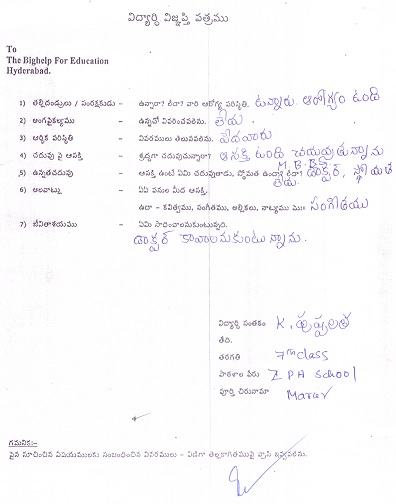 విద్యార్థి విజ్ఞప్తి పత్రము
To
The Bighelp For Education
Hyderabad.
1) తల్లిదండ్రులు / సంరక్షకుడు - ఉన్నారా? లేదా? వారి ఆరోగ్య పరిస్థితి. ఉన్నారు. ఆరోగ్యం ఉంది
2) అంగవైకల్యము - ఉన్నచో వివరించవలెను. లేదు
3) ఆర్థిక పరిస్థితి - వివరములు తెలుపవలెను. పేదవారు
4) చదువు పై ఆసక్తి - శ్రద్ధగా చదువుచున్నారా? ఆసక్తి ఉంది చదువుతున్నాను
5) ఉన్నతచదువు - ఆసక్తి ఉంటే ఏమి చదువుతాడు, స్తోమత ఉందా? లేదా? M.B.B.S డాక్టర్, స్తోమత
లేదు
6) అలవాట్లు - ఏఏ పనుల మీద ఆసక్తి.
ఉదా - కవిత్వము, సంగీతము, అల్లికలు, నాట్యము మొ॥ సంగీతము
7) జీవితాశయము - ఏమి సాధించాలనుకుంటున్నది.
డాక్టర్ కావాలనుకుంటున్నాను.
విద్యార్థి సంతకం K. పుష్పలత
తేది.
తరగతి 7th class
పాఠశాల పేరు Z PA School
పూర్తి చిరునామా
గమనిక:-
పైన సూచించిన విషయములకు సంబంధించిన వివరములు - విడిగా తెల్లకాగితముపై వ్రాసి ఇవ్వవలెను.